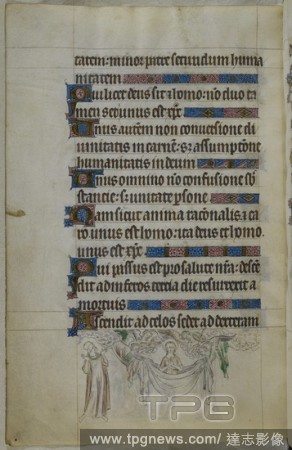 tatem: minor patre secundum huma
nitatem
Qui licet deus sit ⁊ homo: nō duo ta
men sed unus est xp̄c
Unus autem non conversione di
vinitatis in carnē: s; assumptōne
humanitatis in deum
Unus omnino nō confusione sb
stancie: s; unitate psone
Nam sicut anima racionalis ⁊ ca
ro unus est homo: ita deus et homo
unus est xp̄c
Qui passus est pro salute nr̄a: desce
dit ad inferos tercia die resurrexit a
mortuis
Ascendit ad celos sedet ad dexteram
TPG
www.tpgnews.com / 達志影像